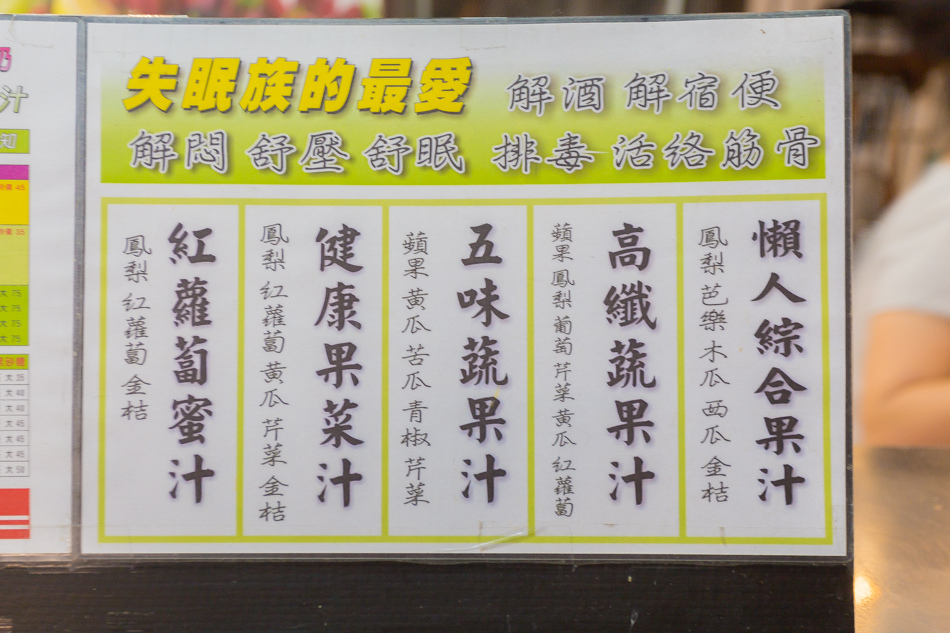 失眠族的最愛 解酒 解宿便
解悶 舒壓 舒眠 排毒 活絡筋骨
懶人綜合果汁
鳳梨 芭樂 木瓜 西瓜 金桔
高纖蔬果汁
蘋果 鳳梨 葡萄 芹菜 黃瓜 紅蘿蔔
五味蔬果汁
蘋果 黃瓜 苦瓜 青椒 芹菜
健康果菜汁
鳳梨 紅蘿蔔 黃瓜 芹菜 金桔
紅蘿蔔蜜汁
鳳梨 紅蘿蔔 金桔
汁
知
45
35
大 75
大 75
大 75
大 75
大 35
大 40
大 40
大 45
大 45
大 50